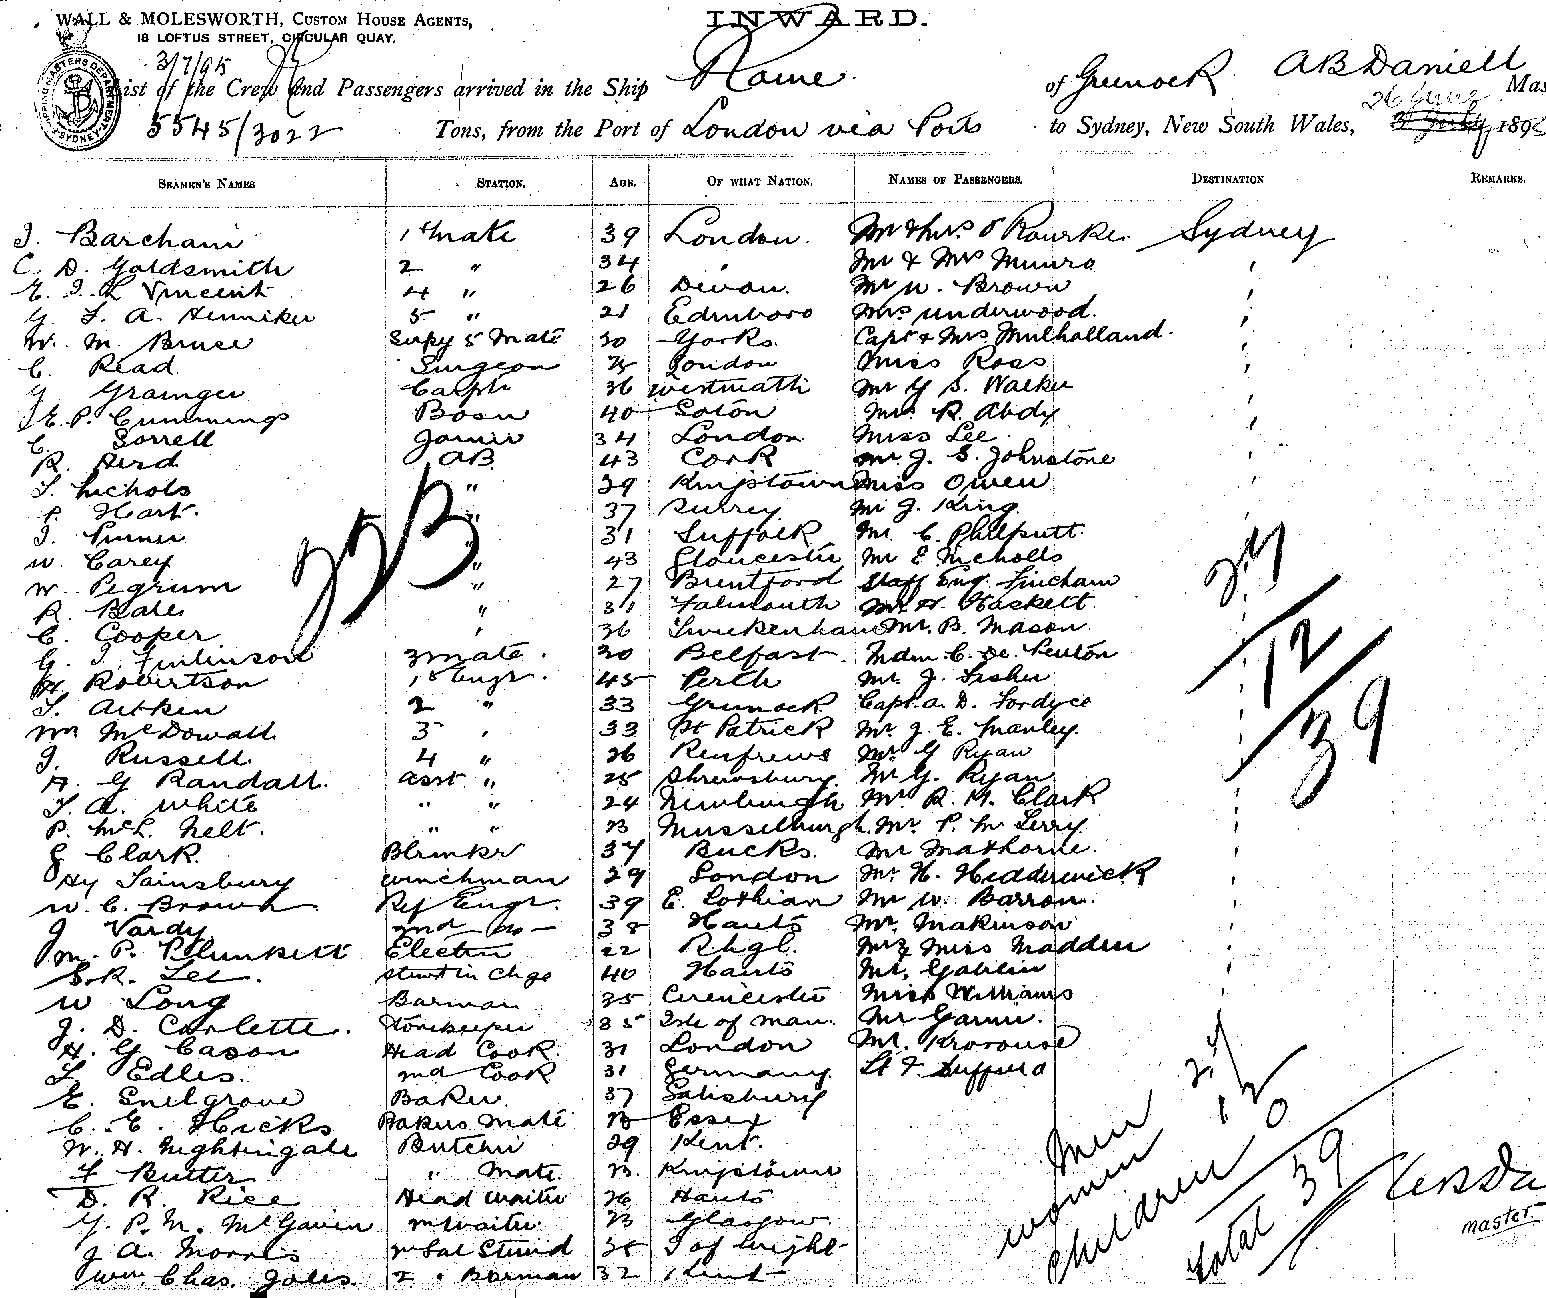 WALL & MOLESWORTH, CUSTOM HOUSE AGENTS,
18 LOFTUS STREET, CIRCULAR QUAY.
INWARD.
3/7/95
List of the Crew and Passengers arrived in the Ship Rome of Greenock A B Daniell Mas
26 June
5545/3022 Tons, from the Port of London via Ports to Sydney, New South Wales, 189
SEAMEN'S NAMES STATION. AGE. OF WHAT NATION. NAMES OF PASSENGERS. DESTINATION REMARKS.
J. Barcham 1st mate 39 London Mr & Mrs O'Rourke Sydney
C. D. Goldsmith 2 " 34 " Mr & Mrs Munro "
E. J. L Vincent 4 " 26 Devon. Mr W. Brown "
G. L. A. Henniker 5 " 21 Edinboro Mrs Underwood. "
W. M. Bruse Supy 5 Mate 20 Yorks. Capt & Mrs Mulholland. "
C. Read Surgeon London Miss Ross "
G Grainger Carptr 36 Westmeath Mr G S. Walker "
E. P. Cummings Bosn 40 Soton Mr. R. Abdy "
C. Sorrell Joiner 34 London Miss Lee "
R. Aird AB 43 Cork Mr J. S. Johnstone
T. Nichols " 29 Kingstown Miss Owen
Hart. " 37 Surrey Mr J. King
J. Pinner " 31 Suffolk Mr. C. Philputt.
W. Carey " 43 Gloucester Mr E Nicholls
W. Pegrum " 27 Brentford Staff Eng. Fincham
R. Bate " 31 Falmouth Mr. H. Haskett
C. Cooper " 36 Twickenham Mr. B. Mason
G. J. Finlinson 3 mate. 20 Belfast. Mdm. C. De. Fenton
H. Robertson 1st Engr. 45 Perth Mr J. Fisher
T. Aitken 2 " 33 Greenock Capt. A. D. Fordyce
Wm McDowall 3 " 33 St Patrick Mr J. E. Manley.
J. Russell 4 " 26 Renfrews Mr. G Ryan
A. G Randall. asst " 25 Shrewsbury Mr G. Ryan
T. A. White " " 24 Newburgh Mr R. M. Clark
P. McL. Nelt. " " 23 Musselburgh Mr. P. M Terry
Clark. 37 Bucks. Mr Mathorne.
Hy Sainsbury Winchman 29 London Mr H. Hedderwick
W. C. Brown Ref Engr. 39 E. Lothian Mr W. Barron.
J Vardy 2nd do 38 Hants Mr. Makinson
M. P. Plunkett Electn 22 Rhyl. Mr & Miss Madden
S. R. Lee. Stewd in chge 40 Hants Mr. Gablin
W Long Barman 35 Cirencester Miss Williams
J. D. Corlette. Storekeeper 35 Isle of Man. Mr
H. G Cason Head Cook 31 London Mr.
Edles. 2nd Cook 31 Germany Lt
E. Snelgrove Baker 37 Salisbury
C. E. Hicks Bakers Mate 23 Essex
W. H. Nightingale Butcher 29 Kent.
F Butter " Mate 23 Kingstown
D. R. Rice Head Waiter 26 Hants
G. P. M. McGavin 2nd Waiter 23 Glasgow
J A. Morris 2nd Sal Stewd I of Wight
Wm. Chas. Joles. 2 " Barman 32 Kent
223
27
12
39
Men 27
Women 12
Children 0
Total 39
Master